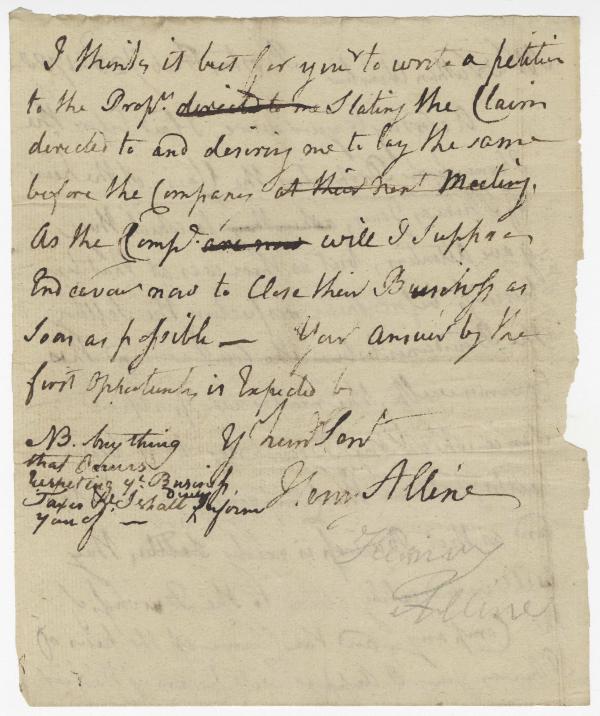 I think it best for you to write a petition
to the Prop.rs directed to me Stating the Claim
directed to and desiring me to lay the same
before the Companies at their next Meeting.
As the Comp.y are now will I Suppose
Endeavour now to Close their Business as
soon as possible — Your Answer by the
first Opportunity is Expected by
Yr humb Servt
Henry Alline
NB. Anything
that Occurs
respecting yr. Business
Taxes &c. I shall duly inform
you of —
Alline